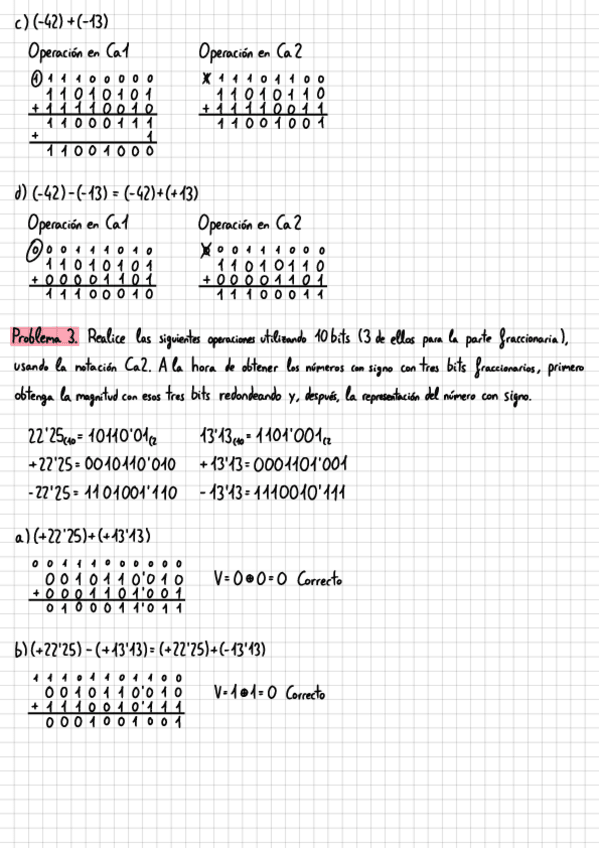 c) (-42) + (-13)
Operación en Ca1 Operación en Ca2
1 1 1 1 0 0 0 0 0 X 1 1 1 1 0 1 1 0 0
1 1 0 1 0 1 0 1 1 1 0 1 0 1 1 0
+ 1 1 1 1 0 0 1 0 + 1 1 1 1 0 0 1 1
1 1 0 0 0 1 1 1 1 1 0 0 1 0 0 1
+ 1
1 1 0 0 1 0 0 0
d) (-42) - (-13) = (-42)+(+13)
Operación en Ca1 Operación en Ca2
0 0 0 1 1 1 0 1 0 0 0 1 1 1 0 0 0
1 1 0 1 0 1 0 1 1 1 0 1 0 1 1 0
+ 0 0 0 0 1 1 0 1 + 0 0 0 0 1 1 0 1
1 1 1 0 0 0 1 0 1 1 1 0 0 0 1 1
Problema 3. Realice las siguientes operaciones utilizando 10 bits (3 de ellos para la parte fraccionaria),
usando la notación Ca2. A la hora de obtener los números con signo con tres bits fraccionarios, primero
obtenga la magnitud con esos tres bits redondeando y, después, la representación del número con signo.
22'25(10 = 10110'01(2 13'13(10 = 1101'001(2
+22'25 = 0010110'010 +13'13 = 0001101'001
-22'25 = 1101001'110 -13'13 = 1110010'111
a) (+22'25)+(+13'13)
0 0 1 1 1 0 0 0 0 0 0
0 0 1 0 1 1 0'0 1 0 V = 0 ⊕ 0 = 0 Correcto
+ 0 0 0 1 1 0 1'0 0 1
0 1 0 0 0 1 1'0 1 1
b) (+22'25) - (+13'13) = (+22'25)+(-13'13)
1 1 1 0 1 1 0 1 1 0 0
0 0 1 0 1 1 0'0 1 0 V = 1 ⊕ 1 = 0 Correcto
+ 1 1 1 0 0 1 0'1 1 1
0 0 0 1 0 0 1 0 0 1